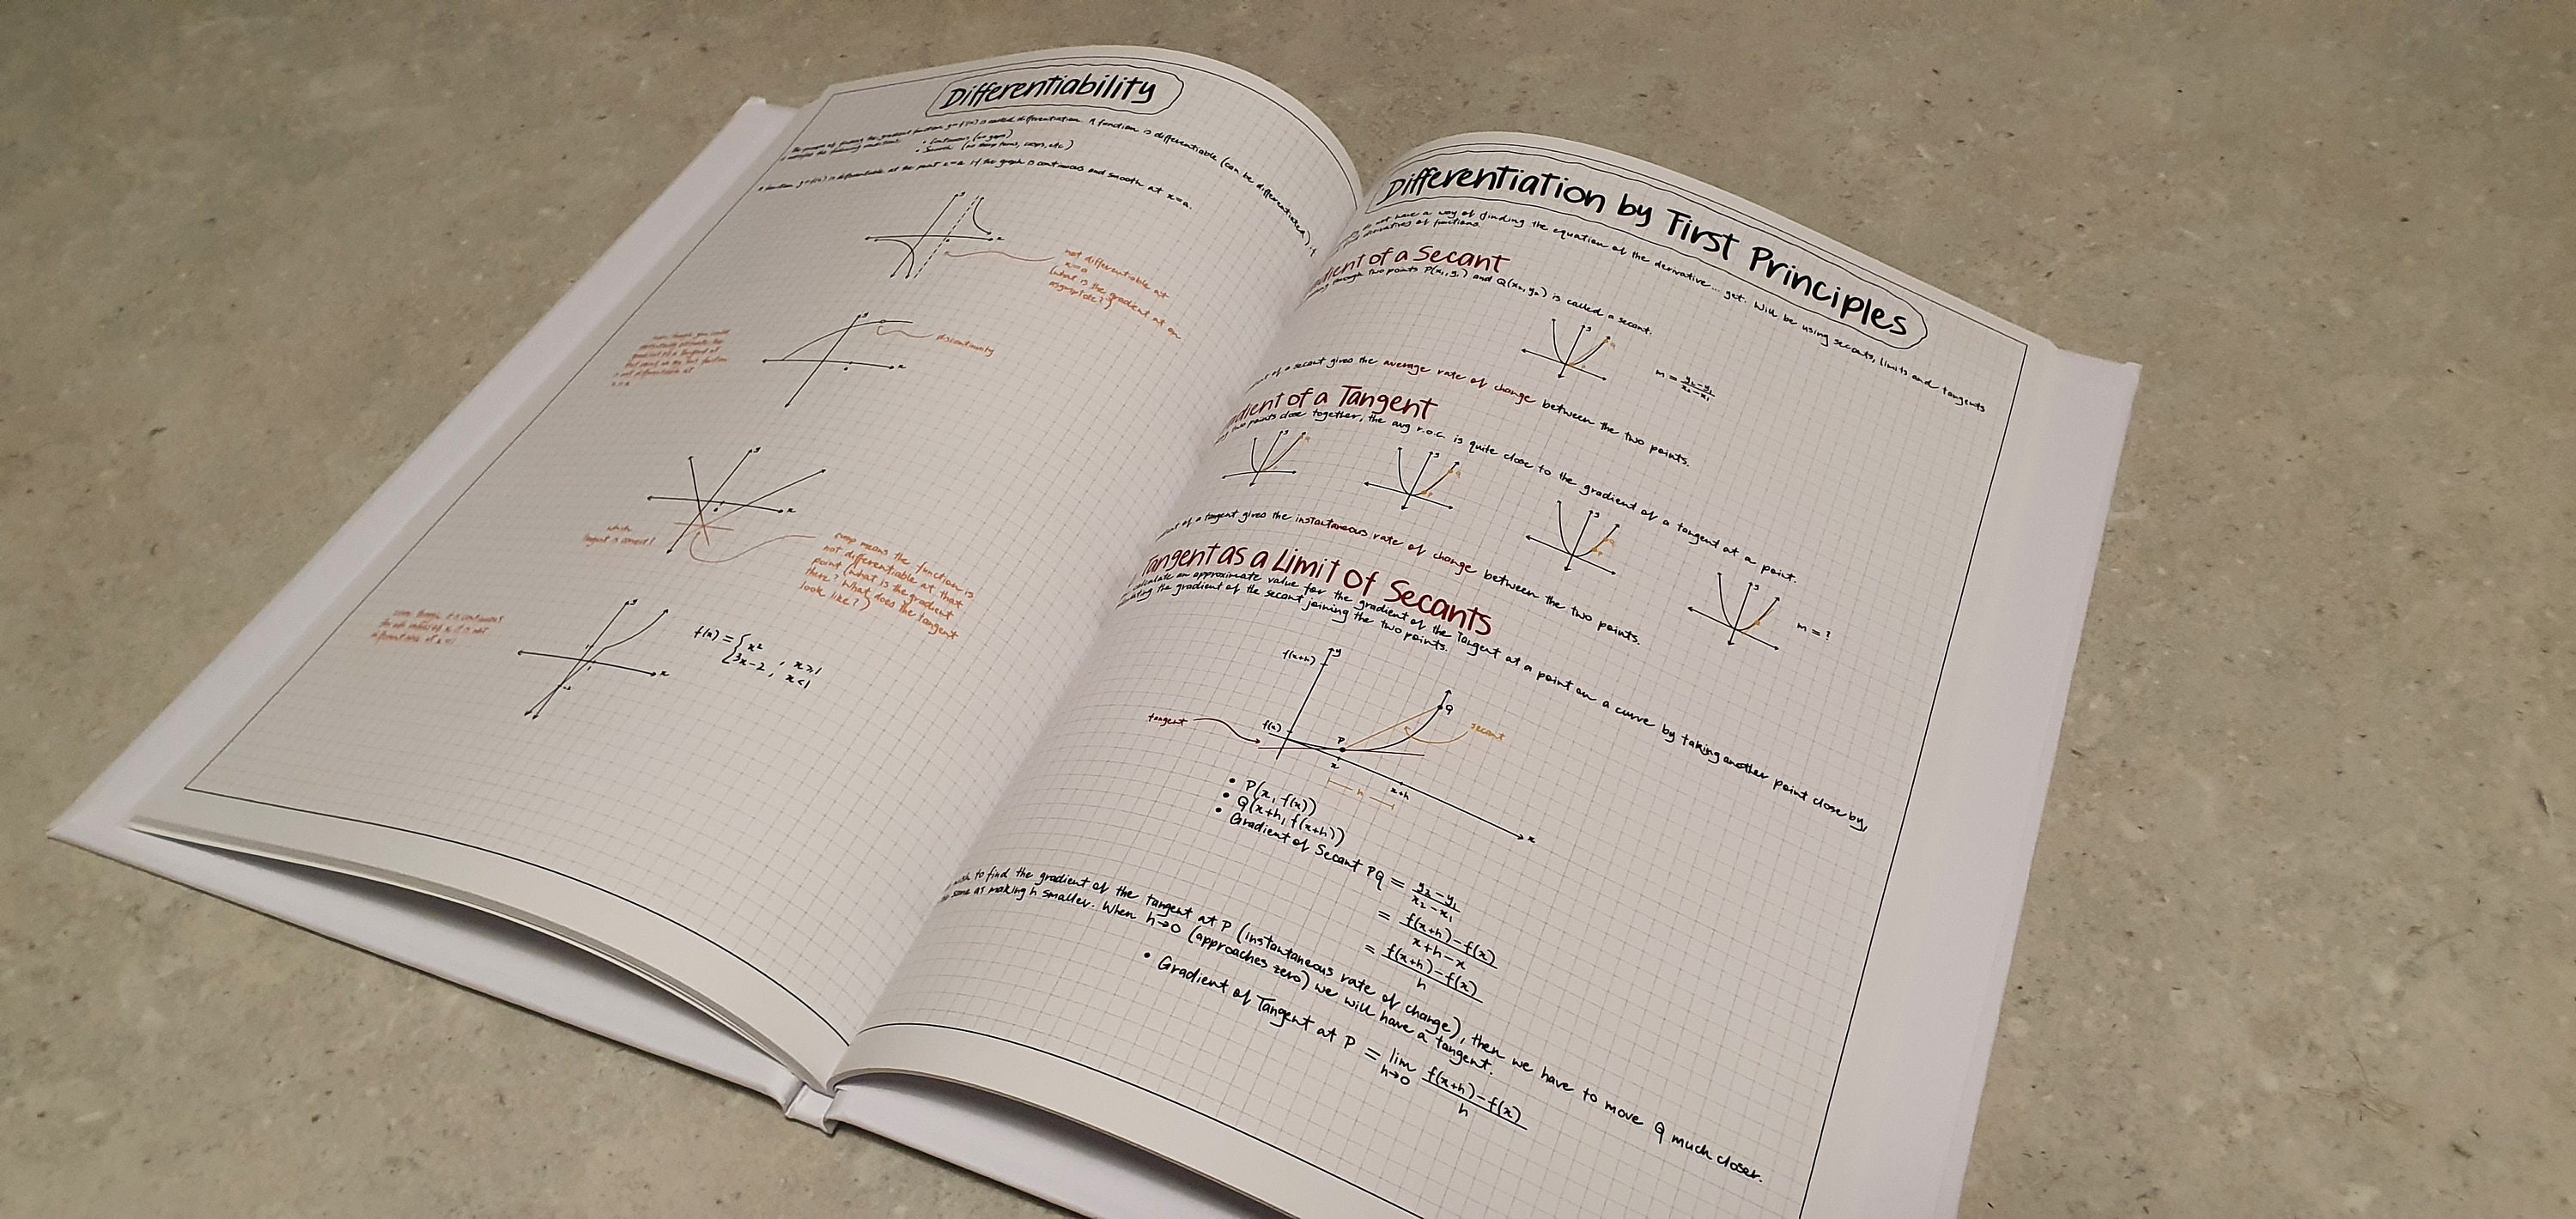 Differentiability
The process of finding the gradient function y=f'(x) is called differentiation. A function is differentiable (can be differentiated) if
it satisfies the following conditions:
• Continuous (no gaps)
• Smooth (no sharp turns, cusps, etc)
A function y=f(x) is differentiable at the point x=a if the graph is continuous and smooth at x=a.
y
x
not differentiable at
x=a
(what is the gradient at an
asymptote?)
y
x
discontinuity
y
x
which
tangent is correct?
cusp means the function is
not differentiable at that
point (what is the gradient
there? What does the tangent
look like?)
y
x
f(x) = { x² , x≥1
3x-2 , x<1
Differentiation by First Principles
not have a way of finding the equation of the derivative... yet. Will be using secants, limits and tangents
derivatives of functions.
dient of a Secant
through two points P(x₁,y₁) and Q(x₂,y₂) is called a secant.
m = y₂-y₁/x₂-x₁
of a secant gives the average rate of change between the two points.
dient of a Tangent
two points close together, the avg r.o.c. is quite close to the gradient of a tangent at a point.
m = ?
of a tangent gives the instantaneous rate of change between the two points.
Tangent as a Limit of Secants
calculate an approximate value for the gradient of the tangent at a point on a curve by taking another point close by,
the gradient of the secant joining the two points.
y
f(x+h)
Q
secant
tangent
f(x)
P
x
h
x+h
x
• P(x, f(x))
• Q(x+h, f(x+h))
• Gradient of Secant PQ = y₂-y₁/x₂-x₁
= f(x+h)-f(x)/x+h-x
= f(x+h)-f(x)/h
to find the gradient of the tangent at P (instantaneous rate of change), then we have to move Q much closer.
same as making h smaller. When h→0 (approaches zero) we will have a tangent.
• Gradient of Tangent at P = lim h→0 f(x+h)-f(x)/h